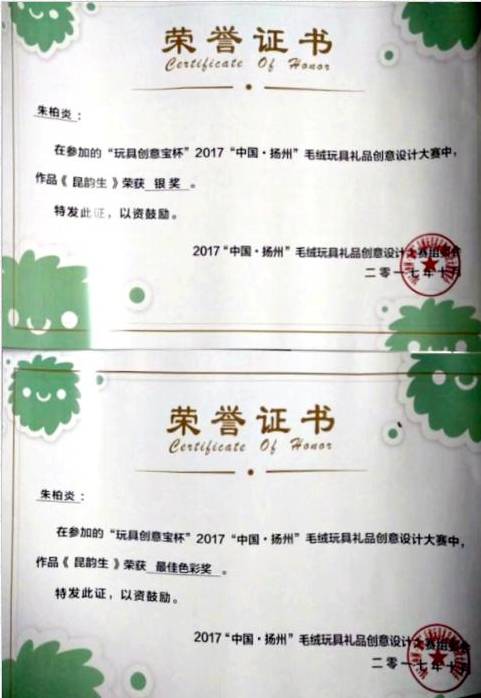 荣誉证书
Certificate Of Honor
朱柏炎：
在参加的“玩具创意宝杯”2017“中国·扬州”毛绒玩具礼品创意设计大赛中，
作品《昆韵生》荣获 银奖 。
特发此证，以资鼓励。
2017“中国·扬州”毛绒玩具礼品创意设计大赛组委会
二零一七年十月
荣誉证书
Certificate Of Honor
朱柏炎：
在参加的“玩具创意宝杯”2017“中国·扬州”毛绒玩具礼品创意设计大赛中，
作品《昆韵生》荣获 最佳色彩奖 。
特发此证，以资鼓励。
2017“中国·扬州”毛绒玩具礼品创意设计大赛组委会
二零一七年十月